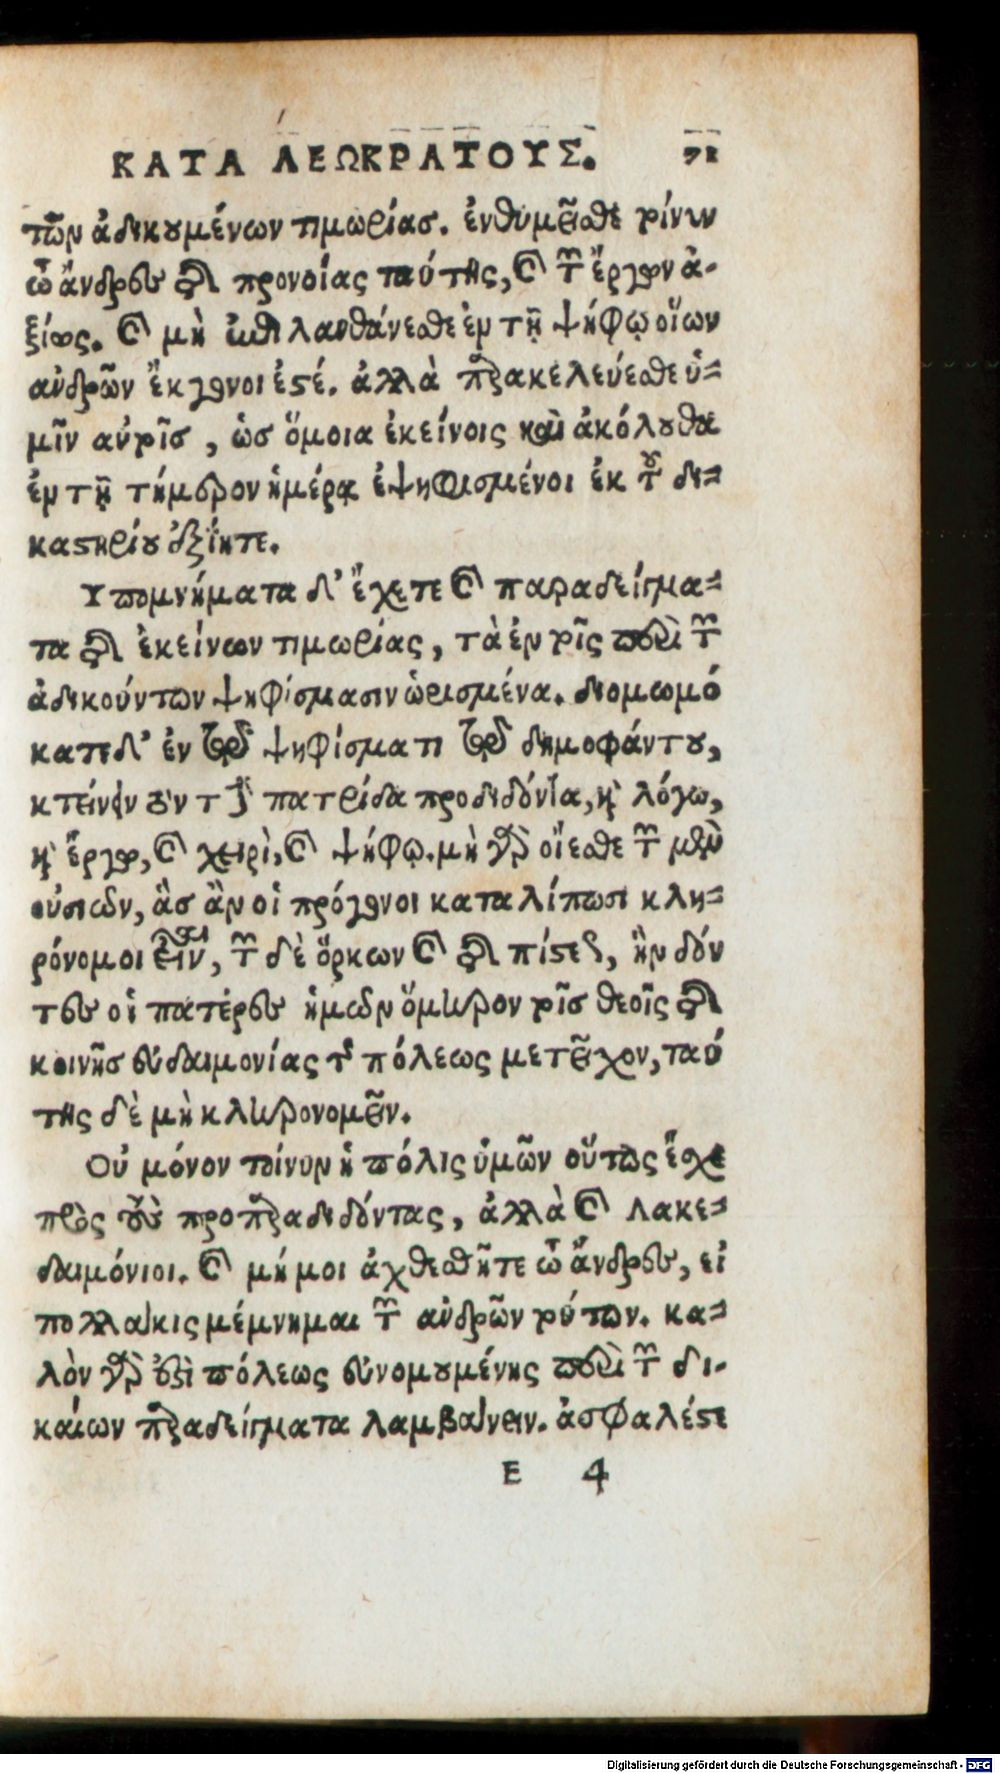 ΚΑΤΑ ΛΕΩΚΡΑΤΟΥΣ. 71
τῶν ἀδικουμένων τιμωρίας. ἐνθυμεῖσθε τοίνυν
ὦ ἄνδρες τῆς προνοίας ταύτης, καὶ τῶν ἔργων ἀ-
ξίως. καὶ μὴ ἐπιλανθάνεσθε ἐν τῇ ψήφῳ οἵων
ἀνδρῶν ἔκγονοι ἐστέ. ἀλλὰ παρακελεύεσθε ὑ-
μῖν αὐτοῖς, ὡς ὅμοια ἐκείνοις καὶ ἀκόλουθα
ἐν τῇ τήμερον ἡμέρᾳ ἐψηφισμένοι ἐκ τοῦ δι-
καστηρίου ἐξίητε.
Υπομνήματα δ' ἔχετε καὶ παραδείγμα-
τα τῆς ἐκείνων τιμωρίας, τὰ ἐν τοῖς περὶ τῶν
ἀδικούντων ψηφίσμασιν ὡρισμένα. διομωμό
κατε δ' ἐν τῷ ψηφίσματι τῷ δημοφάντου,
κτείνειν τὸν τὴν πατρίδα προδιδόντα, καὶ λόγω,
καὶ ἔργῳ, καὶ χειρὶ, καὶ ψήφῳ. μὴ γὰρ οἴεσθε τῶν μὲν
οὐσιῶν, ἃς ἂν οἱ πρόγονοι καταλίπωσι κλη-
ρόνομοι εἶναι, τῶν δὲ ὅρκων καὶ τῆς πίστεως, ἣν δόν
τες οἱ πατέρες ἡμῶν ὅμηρον τοῖς θεοῖς τῆς
κοινῆς εὐδαιμονίας τῆς πόλεως μετεῖχον, ταύ
της δὲ μὴ κληρονομεῖν.
Οὐ μόνον τοίνυν ἡ πόλις ὑμῶν οὕτως ἔσχε
πρὸς τοὺς προπαραδιδόντας, ἀλλὰ καὶ Λακε-
δαιμόνιοι. καὶ μή μοι ἀχθεσθῆτε ὦ ἄνδρες, εἰ
πολλάκις μέμνημαι τῶν ἀνδρῶν τούτων. κα-
λὸν γὰρ ἐπὶ πόλεως εὐνομουμένης περὶ τῶν δι-
καίων παραδείγματα λαμβάνειν. ἀσφαλέστε
E 4
Digitalisierung gefördert durch die Deutsche Forschungsgemeinschaft - DFG